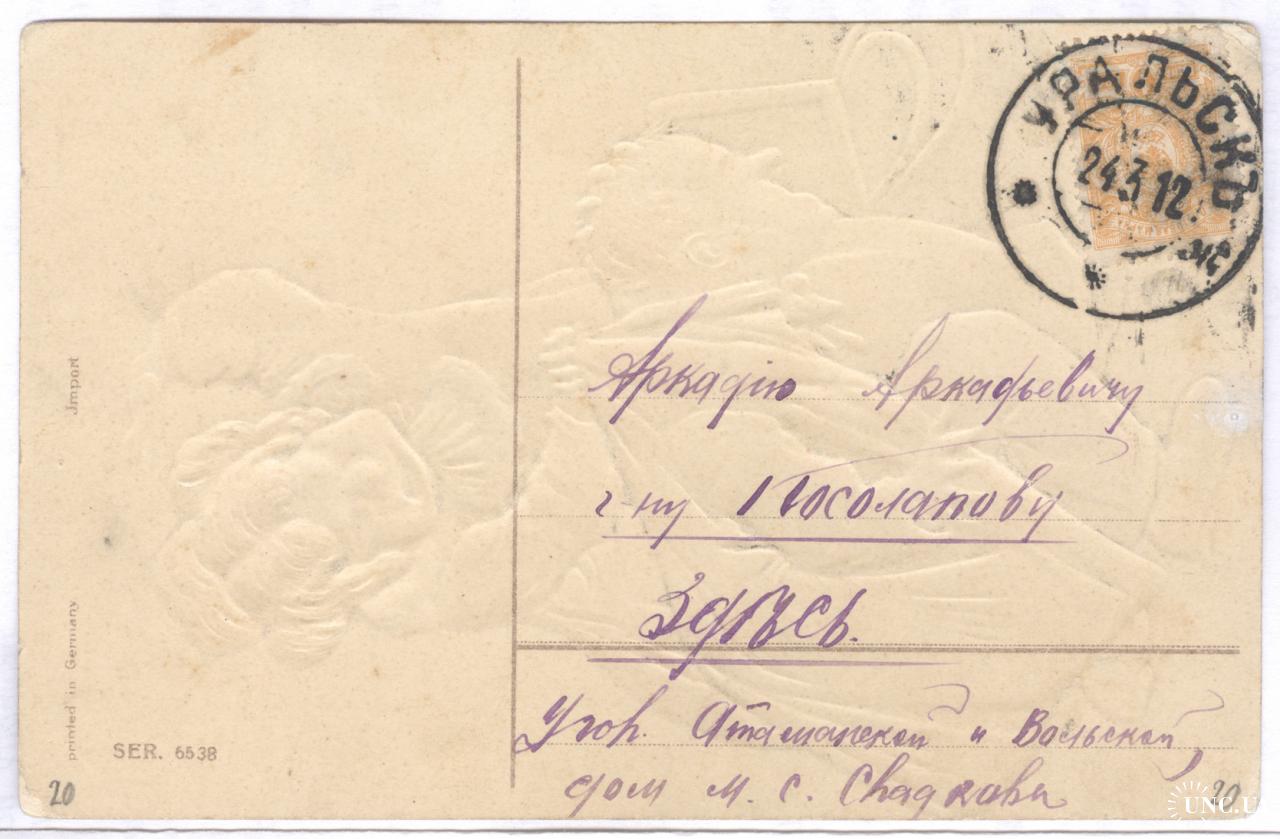 УРАЛЬСКЪ
24.3.12.
Аркадію Аркадьевичу
г-ну Косолапову
Здѣсь.
Угор. Атаманской и Вольской,
дом М. С.
Jmport
printed in Germany
SER. 6538
20
20
UNC.U